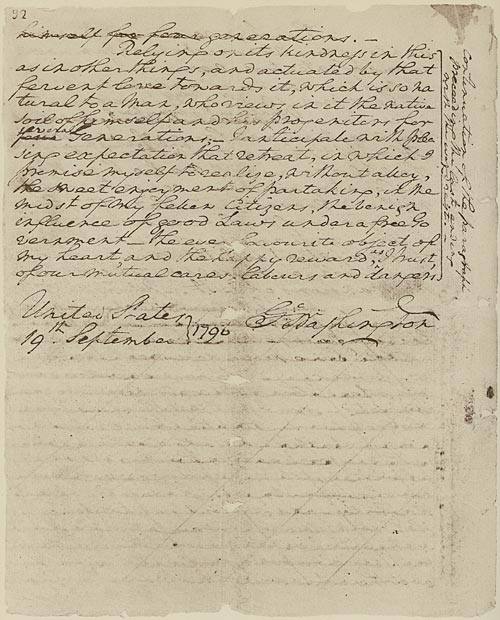 32
himself for four generations. —
Relying on its kindness in this
as in other things, and actuated by that
fervent love towards it, which is so na
tural to a man, who views in it the native
soil of himself and his progenitors for
several
four Generations; — I anticipate with plea
sing expectation that retreat, in which I
promise myself to realize, without alloy,
the sweet enjoyment of partaking, in the
midst of my fellow Citizens, the benign
influence of good Laws under a free Go
vernment — the ever favourite object of
my heart, and the happy reward, as I trust,
of our mutual cares, labours and dangers.
United States
19th September 1796
Go Washington
Continuation of the paragraph
preceeding the last ending
with the word